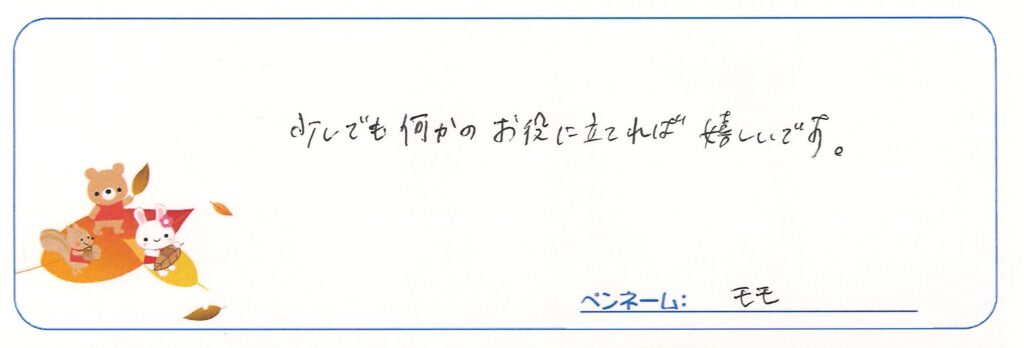 少しでも何かのお役に立てれば嬉しいです。
ペンネーム： モモ